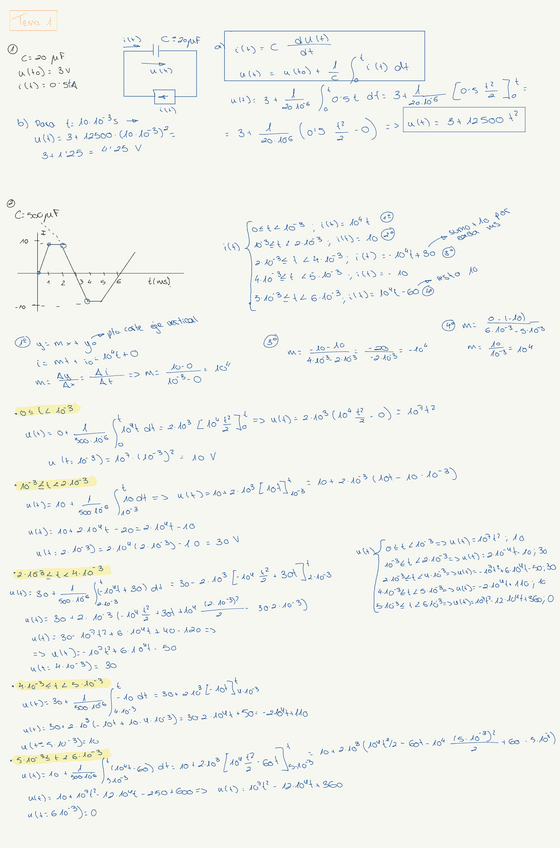 Tema 1
① C = 20 μF
u(t0) = 3V
i(t) = 0'5tA
i(t) C = 20μF
u(t)
i(t)
a) i(t) = C du(t)/dt
u(t) = u(t0) + 1/C ∫₀ᵗ i(t) dt
u(t): 3 + 1/20·10⁻⁶ ∫₀ᵗ 0'5t dt = 3 + 1/20·10⁻⁶ [0'5 t²/2]₀ᵗ =
= 3 + 1/20·10⁻⁶ (0'5 t²/2 - 0) => u(t) = 3 + 12500 t²
b) Para t = 10·10⁻³s →
u(t) = 3 + 12500·(10·10⁻³)² =
3 + 1'25 = 4'25 V
② C = 500 μF
10
-10
1 2 3 4 5 6 t(ms)
i(t)
0 ≤ t < 10⁻³ ; i(t) = 10⁴t 1º
10⁻³ ≤ t < 2·10⁻³ ; i(t) = 10 2º
2·10⁻³ ≤ t < 4·10⁻³ ; i(t) = -10⁴t + 30 3º
sumo +10 por cada ms
4·10⁻³ ≤ t < 5·10⁻³ ; i(t) = -10
5·10⁻³ ≤ t < 6·10⁻³ ; i(t) = 10⁴t - 60 4º
resto 10
1º y = mx + y₀ → pto corte eje vertical
i = mt + i₀ = 10⁴t + 0
m = Δy/Δx = Δi/Δt => m = 10-0/10⁻³-0 = 10⁴
3º m = -10-10/4·10⁻³-2·10⁻³ = -20/-2·10⁻³ = -10⁴
4º m = 0-(-10)/6·10⁻³-5·10⁻³
m = 10/10⁻³ = 10⁴
· 0 ≤ t < 10⁻³
u(t) = 0 + 1/500·10⁻⁶ ∫₀ᵗ 10⁴t dt = 2·10³ [10⁴ t²/2]₀ᵗ => u(t) = 2·10³ (10⁴ t²/2 - 0) = 10⁷t²
u(t=10⁻³) = 10⁷·(10⁻³)² = 10 V
· 10⁻³ ≤ t < 2·10⁻³
u(t) = 10 + 1/500·10⁻⁶ ∫ 10 dt => u(t) = 10 + 2·10³ [10t] = 10 + 2·10⁻³ (10t - 10·10⁻³)
u(t) = 10 + 2·10⁴t - 20 = 2·10⁴t - 10
u(t=2·10⁻³) = 2·10⁴(2·10⁻³) - 10 = 30 V
· 2·10⁻³ ≤ t < 4·10⁻³
u(t) = 30 + 1/500·10⁻⁶ ∫ (-10⁴t + 30) dt = 30 - 2·10³ [-10⁴ t²/2 + 30t] 2·10⁻³
u(t) = 30 + 2·10³ (-10⁴ t²/2 + 30t + 10⁴ (2·10⁻³)²/2 - 30·2·10⁻³)
u(t) = 30 - 10⁷t² + 6·10⁴t + 40 - 120 =>
=> u(t) = -10⁷t² + 6·10⁴t - 50
u(t=4·10⁻³) = 30
u(t)
0 ≤ t < 10⁻³ => u(t) = 10⁷t² ; 10
10⁻³ ≤ t < 2·10⁻³ => u(t) = 2·10⁴t - 10 ; 30
2·10⁻³ ≤ t < 4·10⁻³ => u(t) = -10⁷t² + 6·10⁴t - 50 ; 30
4·10⁻³ ≤ t < 5·10⁻³ => u(t) = -2·10⁴t + 110 ; 10
5·10⁻³ ≤ t < 6·10⁻³ => u(t) = 10⁷t² - 12·10⁴t + 360 ; 0
· 4·10⁻³ ≤ t < 5·10⁻³
u(t) = 30 + 1/500·10⁻⁶ ∫ -10 dt = 30 + 2·10³ [-10t] 4·10⁻³
u(t) = 30 + 2·10³ (-10t + 10·4·10⁻³) = 30·2·10⁴t + 80 = -2·10⁴t + 110
u(t=5·10⁻³) = 10
· 5·10⁻³ ≤ t < 6·10⁻³
u(t) = 10 + 1/500·10⁻⁶ ∫ (10⁴t - 60) dt = 10 + 2·10³ [10⁴ t²/2 - 60t] 5·10⁻³ = 10 + 2·10³ (10⁴t²/2 - 60t - 10⁴ (5·10⁻³)²/2 + 60·5·10⁻³)
u(t) = 10 + 10⁷t² - 12·10⁴t - 250 + 600 => u(t) = 10⁷t² - 12·10⁴t + 360
u(t=6·10⁻³) = 0